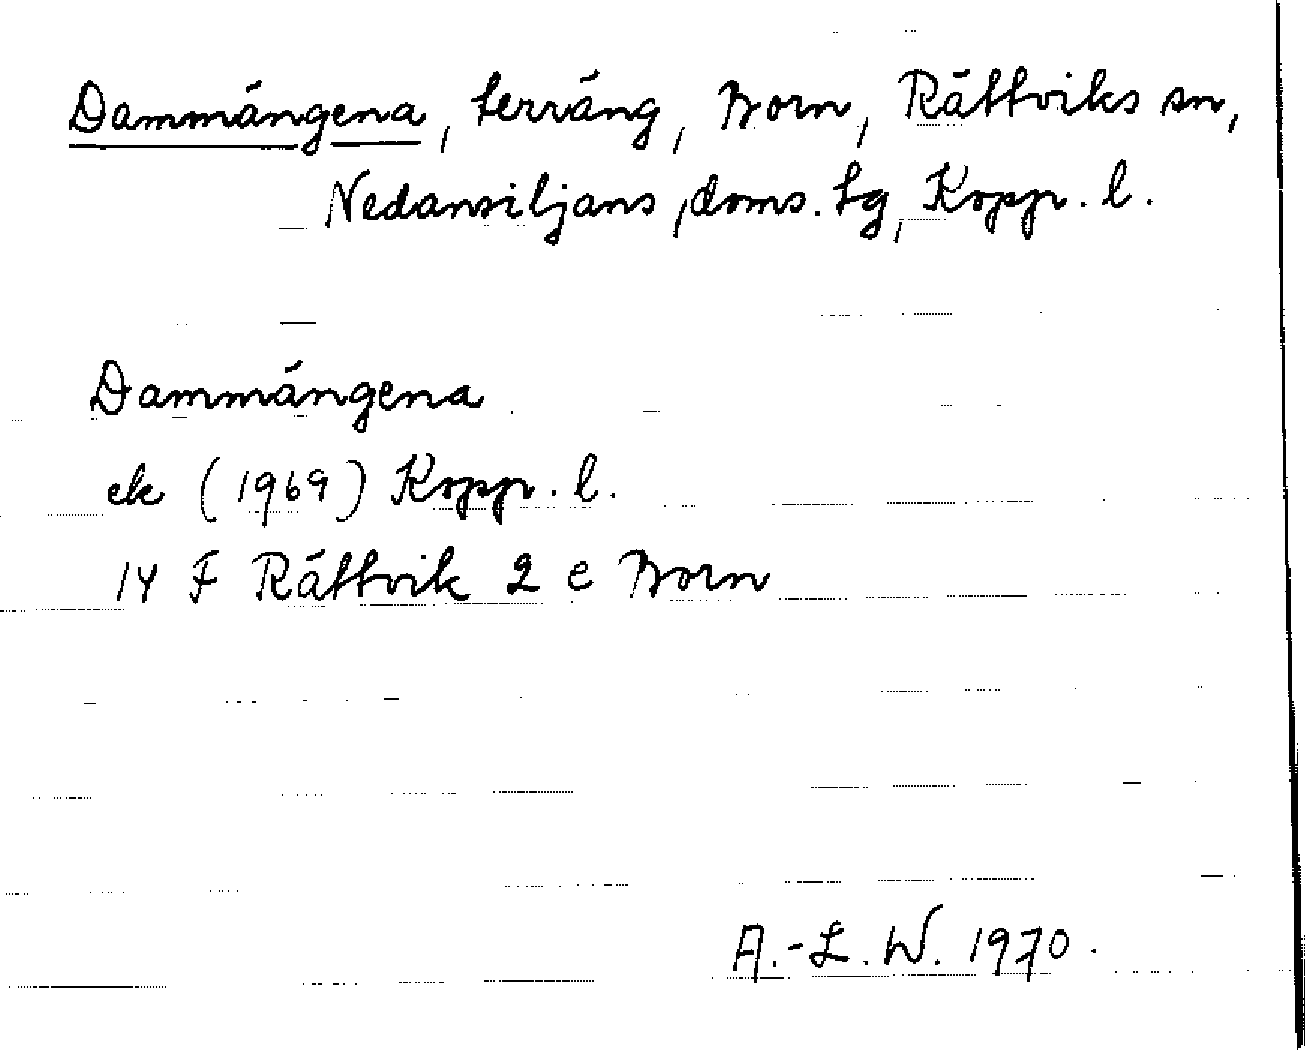 Dammängena, terräng, Born, Rättviks sn,
Nedansiljans doms. tg, Kopp. l.
Dammängena
ek (1969) Kopp. l.
14 F Rättvik 2 e Born
A.-L. W. 1970.